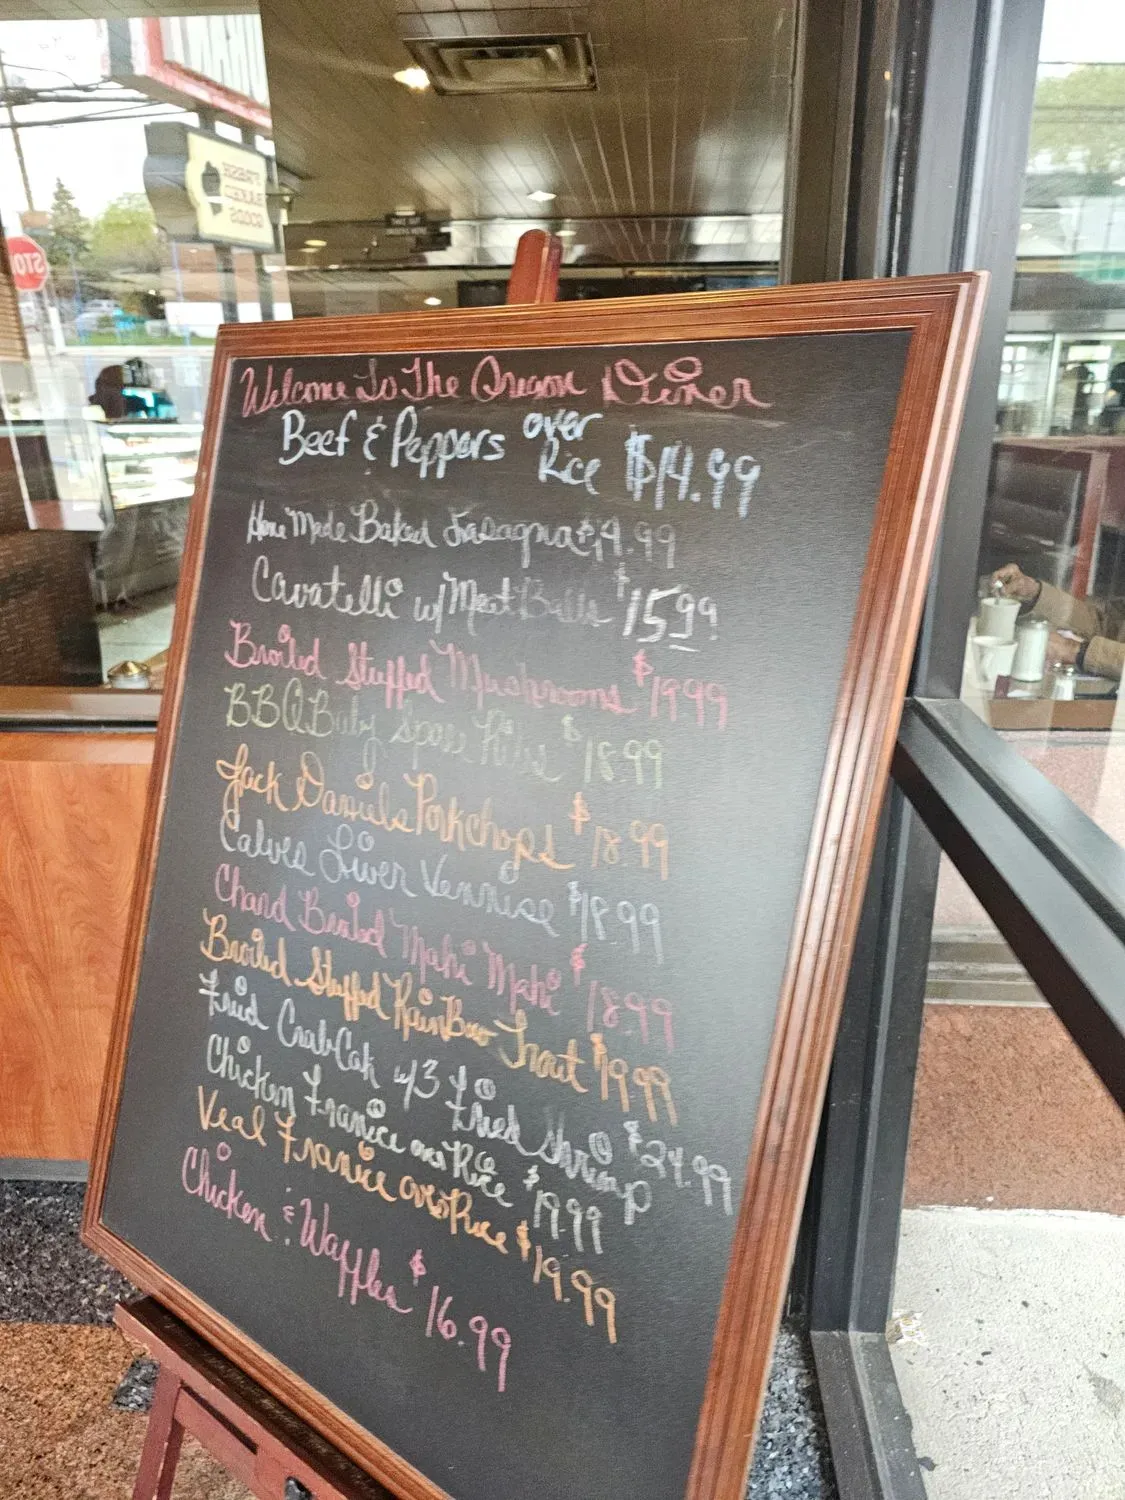 STO
FRESH
BAKED
GOODS
Welcome To The Qream Diner
Beef & Peppers over Rice $14.99
Home Made Baked Lasagna $14.99
Cavatelli w/ Meat Balls $15.99
Broiled Stuffed Mushrooms $19.99
BBQ Baby Spare Ribs $18.99
Jack Daniels Porkchops $18.99
Calves Liver Vennise $18.99
Chard Broiled Mahi Mahi $18.99
Broiled Stuffed RainBow Trout $19.99
Fried CrabCak w/3 Fried Shrimp $24.99
Chicken Francie over Rice $19.99
Veal Francie over Rice $19.99
Chicken & Waffles $16.99